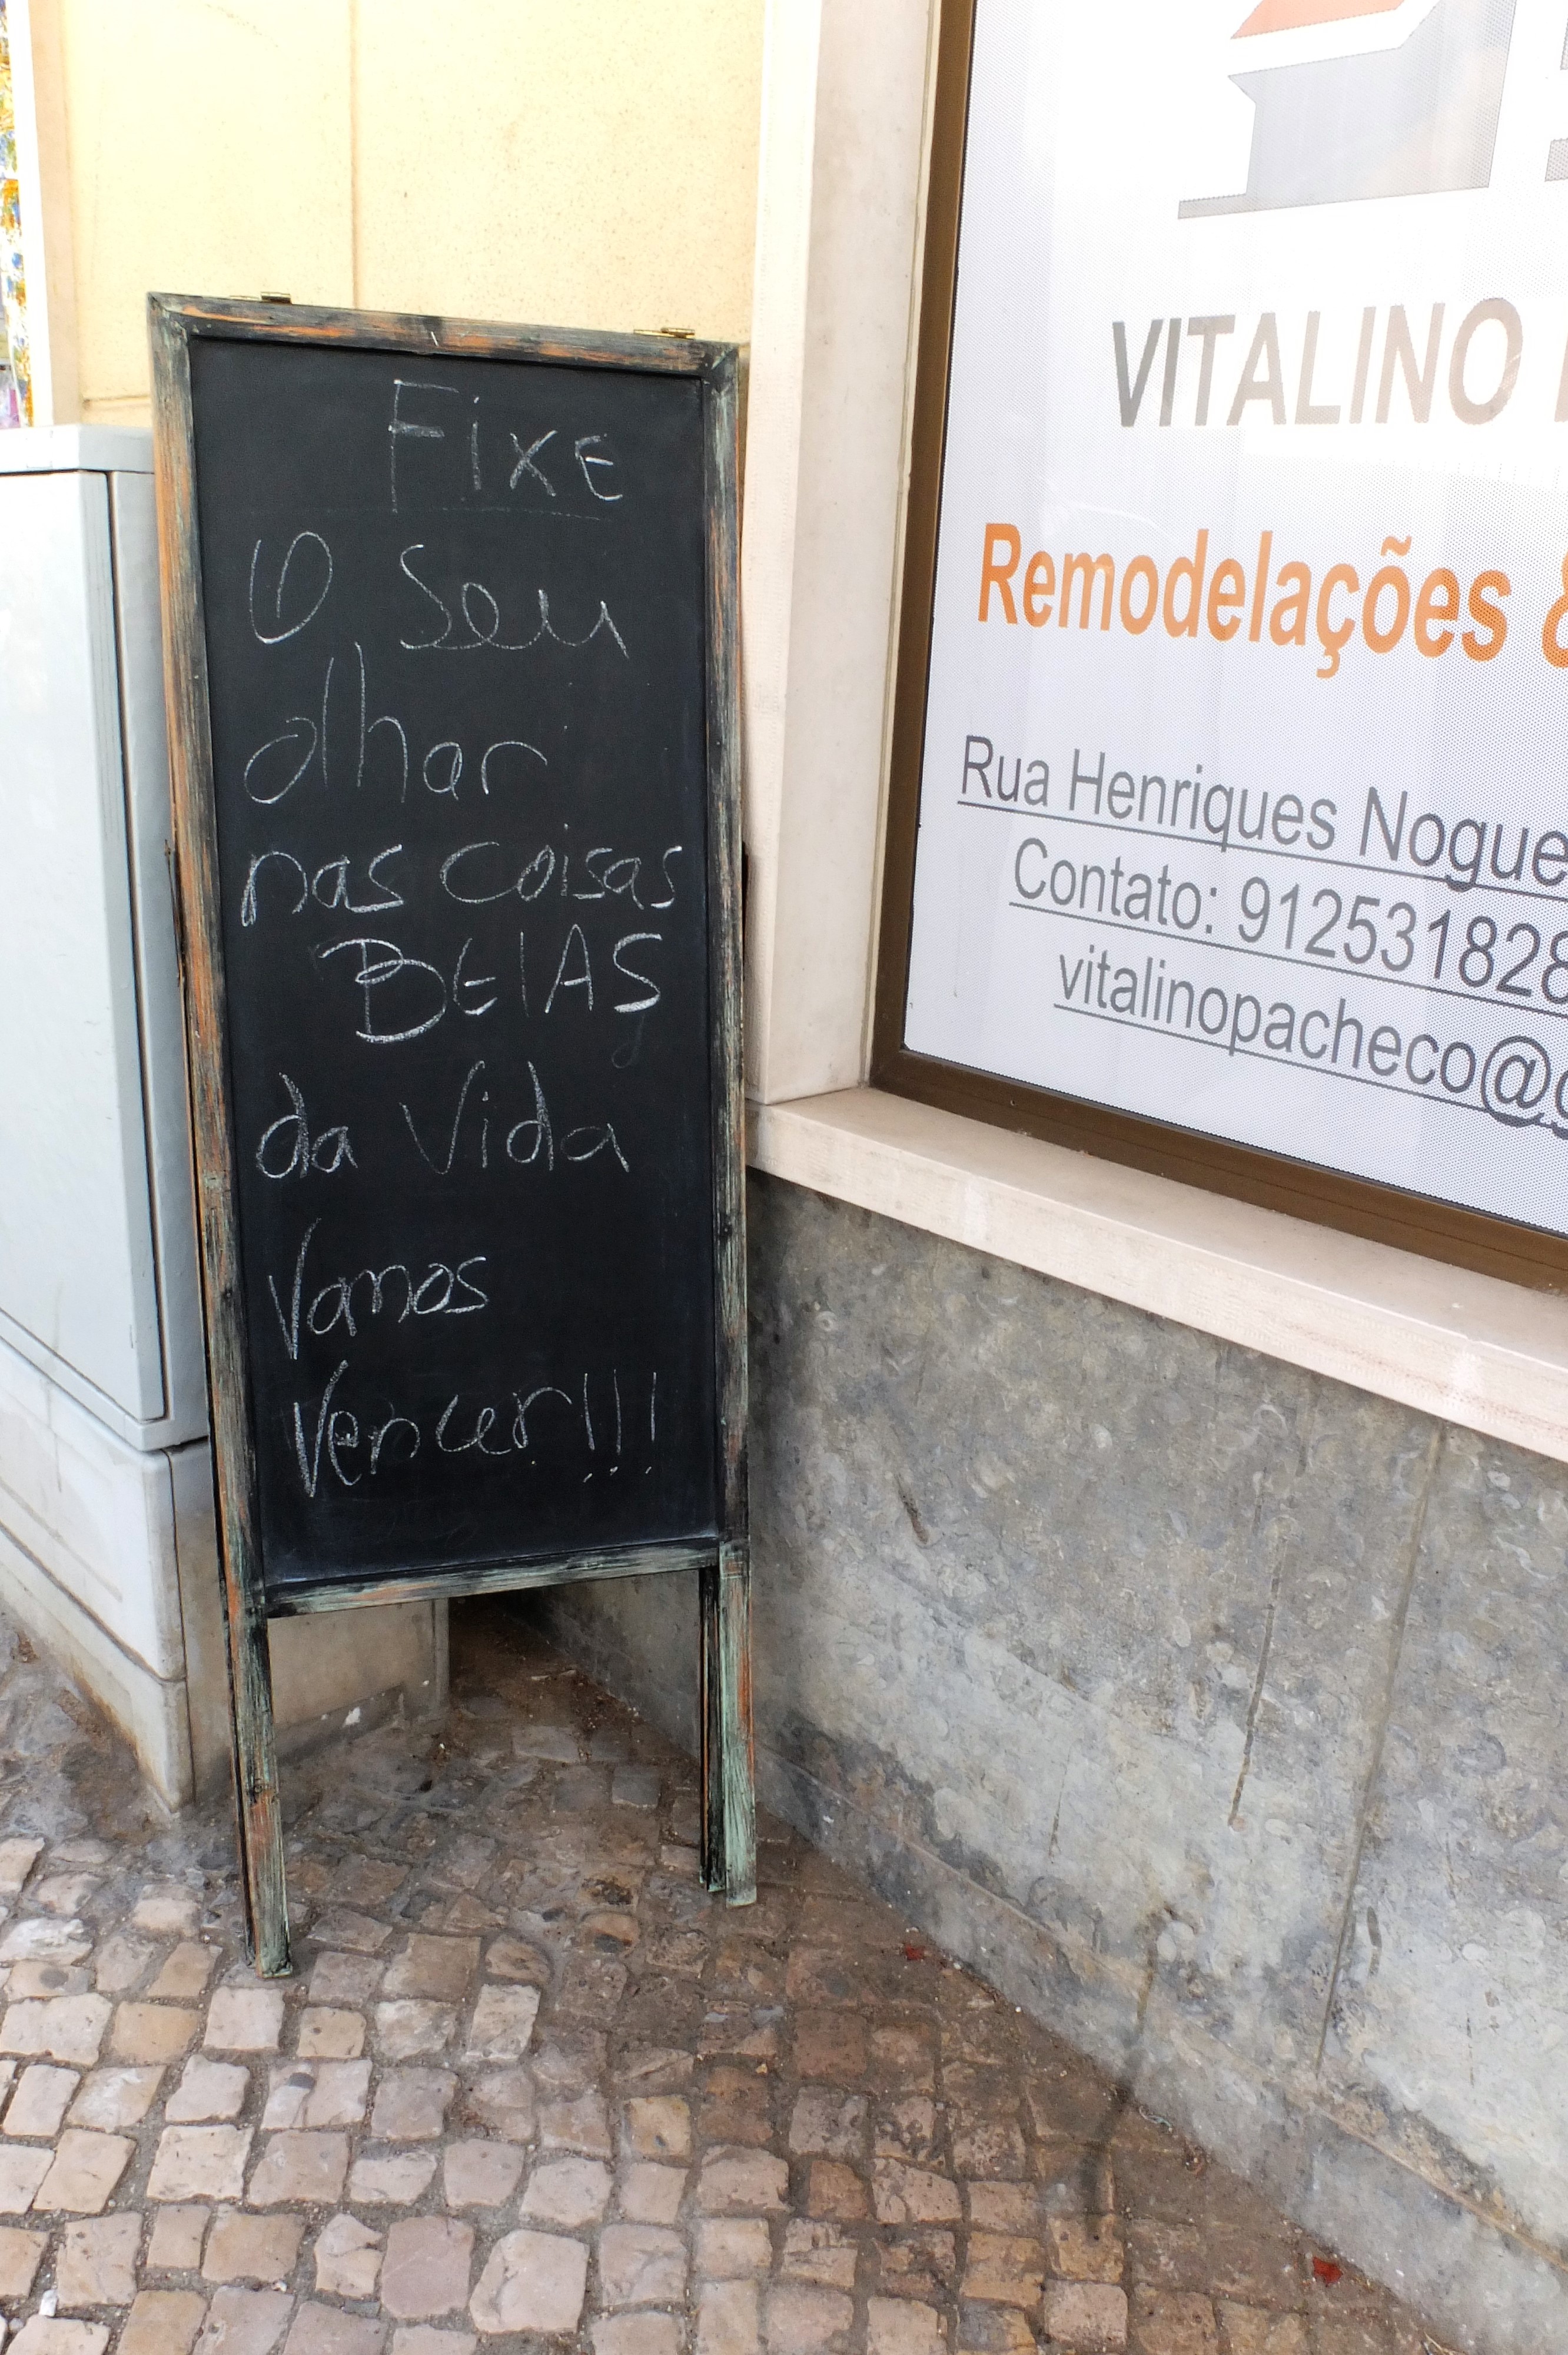 FixE
O seu
olhar
nas coisas
BElAS
da Vida
Vamos
Vencer!!!
VITALINO
Remodelações &
Rua Henriques Nogue
Contato: 912531828
vitalinopacheco@g